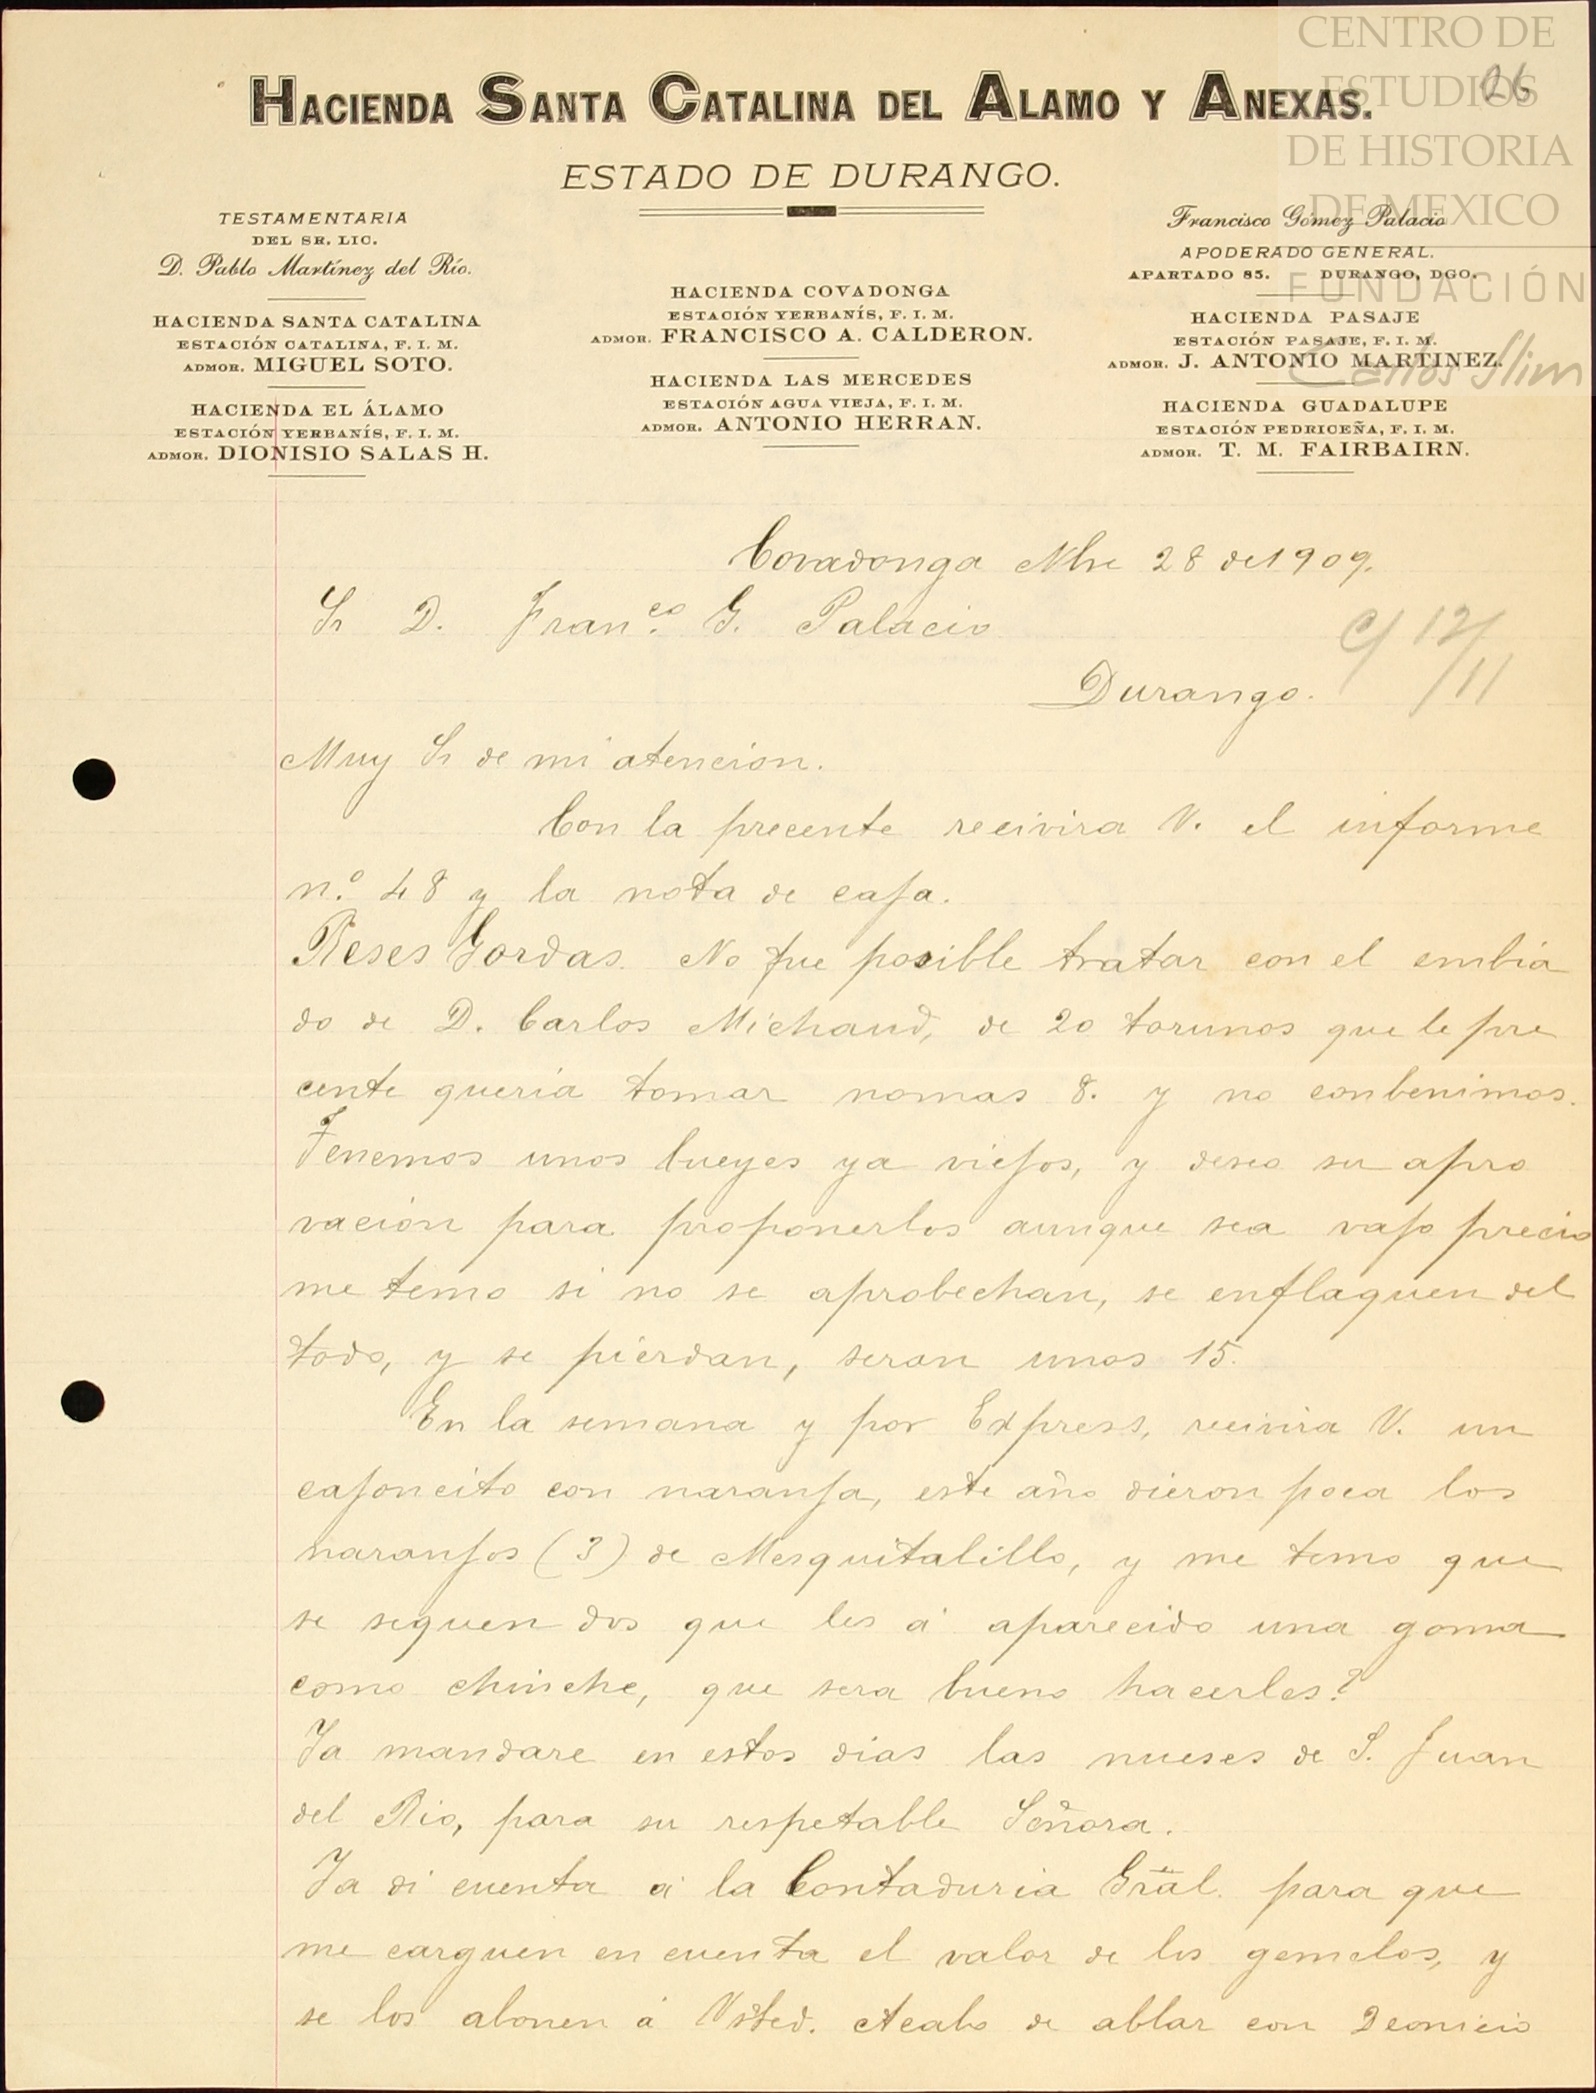 CENTRO DE
ESTUDIOS
DE HISTORIA
DE MEXICO
FUNDACIÓN
Carlos Slim
26
HACIENDA SANTA CATALINA DEL ALAMO Y ANEXAS.
ESTADO DE DURANGO.
TESTAMENTARIA
DEL SR. LIC.
D. Pablo Martínez del Río.
HACIENDA SANTA CATALINA
ESTACIÓN CATALINA, F. I. M.
ADMOR. MIGUEL SOTO.
HACIENDA EL ÁLAMO
ESTACIÓN YERBANÍS, F. I. M.
ADMOR. DIONISIO SALAS H.
HACIENDA COVADONGA
ESTACIÓN YERBANÍS, F. I. M.
ADMOR. FRANCISCO A. CALDERON.
HACIENDA LAS MERCEDES
ESTACIÓN AGUA VIEJA, F. I. M.
ADMOR. ANTONIO HERRAN.
Francisco Gómez Palacio
APODERADO GENERAL.
APARTADO 85. DURANGO, DGO.
HACIENDA PASAJE
ESTACIÓN PASAJE, F. I. M.
ADMOR. J. ANTONIO MARTINEZ.
HACIENDA GUADALUPE
ESTACIÓN PEDRICEÑA, F. I. M.
ADMOR. T. M. FAIRBAIRN.
Covadonga Nbre 28 de 1909.
Sr D. Franco. G. Palacio
c/ 12/
/11
Durango.
Muy Sr de mi atencion.
Con la precente recivira V. el informe
n.º 48 y la nota de caja.
Reses Gordas. No fue posible tratar con el embia
do de D. Carlos Michaud, de 20 torunos que le pre
cente queria tomar nomas 8. y no conbenimos.
Tenemos unos bueyes ya viejos, y deseo su apro
vacion para proponerlos aunque sea vajo precio
me temo si no se aprobechan, se enflaquen del
todo, y se pierdan, seran unos 15.
En la semana y por Express, recivira V. un
cajoncito con naranja, este año dieron poca los
naranjos (3) de Mesquitalillo, y me temo que
se sequen dos que les á aparecido una goma
como chinche, que sera bueno hacerles?
Ya mandare en estos dias las nueses de S. Juan
del Rio, para su respetable Señora.
Ya di cuenta á la Contaduria Gral. para que
me carguen en cuenta el valor de los gemelos, y
se los abonen á Usted. Acabo de ablar con Deonicio